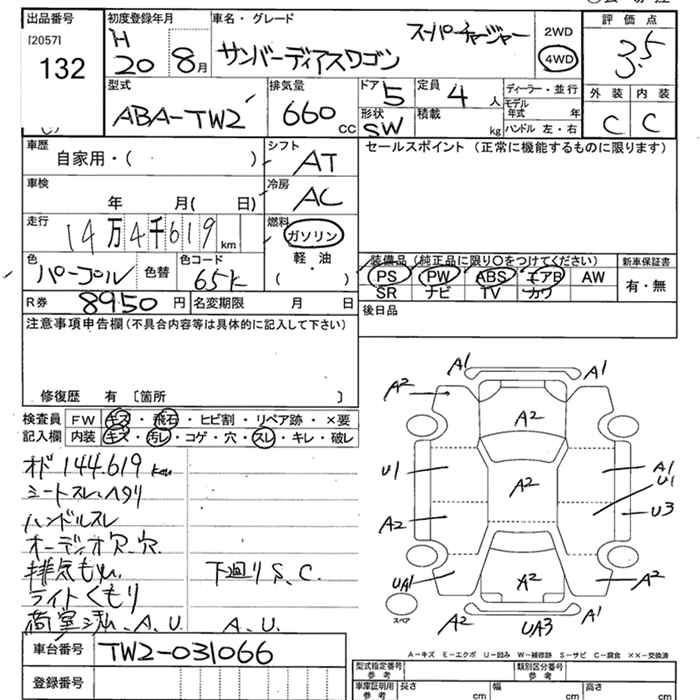 出品番号
[2057]
132
初度登録年月
H
20 8月
車名・グレード
サンバーディアスワゴン
スーパーチャージャー
2WD
4WD
評価点
3.5
外装 内装
C C
型式
ABA-TW2
排気量
660 CC
ドア 5
定員 4 人
形状 SW
積載 kg
ディーラー・並行
モデル
年式 年
ハンドル 左・右
車歴
自家用・( )
シフト
AT
セールスポイント (正常に機能するものに限ります)
車検
年 月( 日)
冷房
AC
走行
14万4千619 km
燃料
ガソリン
軽油
( ・ )
色
パープル
色替
色コード
65K
装備品 (純正品に限り○をつけてください)
PS PW ABS エアB AW
SR ナビ TV カワ
新車保証書
有・無
R券 8950 円
名変期限 月 日
後日品
注意事項申告欄 (不具合内容等は具体的に記入して下さい)
修復歴 有 〔箇所 〕
検査員
記入欄
FW キズ・飛石・ヒビ割・リペア跡・×要
内装 キズ・汚レ・コゲ・穴・スレ・キレ・破レ
オド 144.619 km
シートスレ、ヘタリ
ハンドルスレ
オーディオ穴.穴.
排気もれ
下廻りS.C.
ライトくもり
A.U.
A.U.
A1 A1
A2 A2
U1 A2 A1
U1
A2 U3
UA1 A2 A2
スペア
A2 UA3 A1
A-キズ E-エクボ U-凹み W-補修跡 S-サビ C-腐食 ××-交換済
車台番号
TW2-031066
登録番号
型式指定番号
参考
類別区分番号
参考
車庫証明用
参考
長さ cm
幅 cm
高さ cm